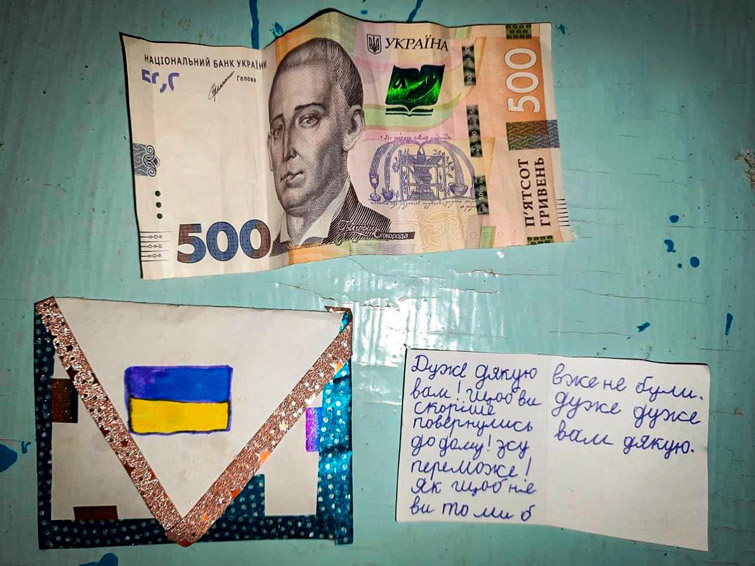 НАЦІОНАЛЬНИЙ БАНК УКРАЇНИ
Голова
УКРАЇНА
500
П'ЯТСОТ
ГРИВЕНЬ
500
Сковорода
Дуже дякую
вам! щоб ви
скоріше
повернулись
до дому! зсу
переможе!
Як щоб не
ви то ми б
вже не були.
дуже дуже
вам дякую.